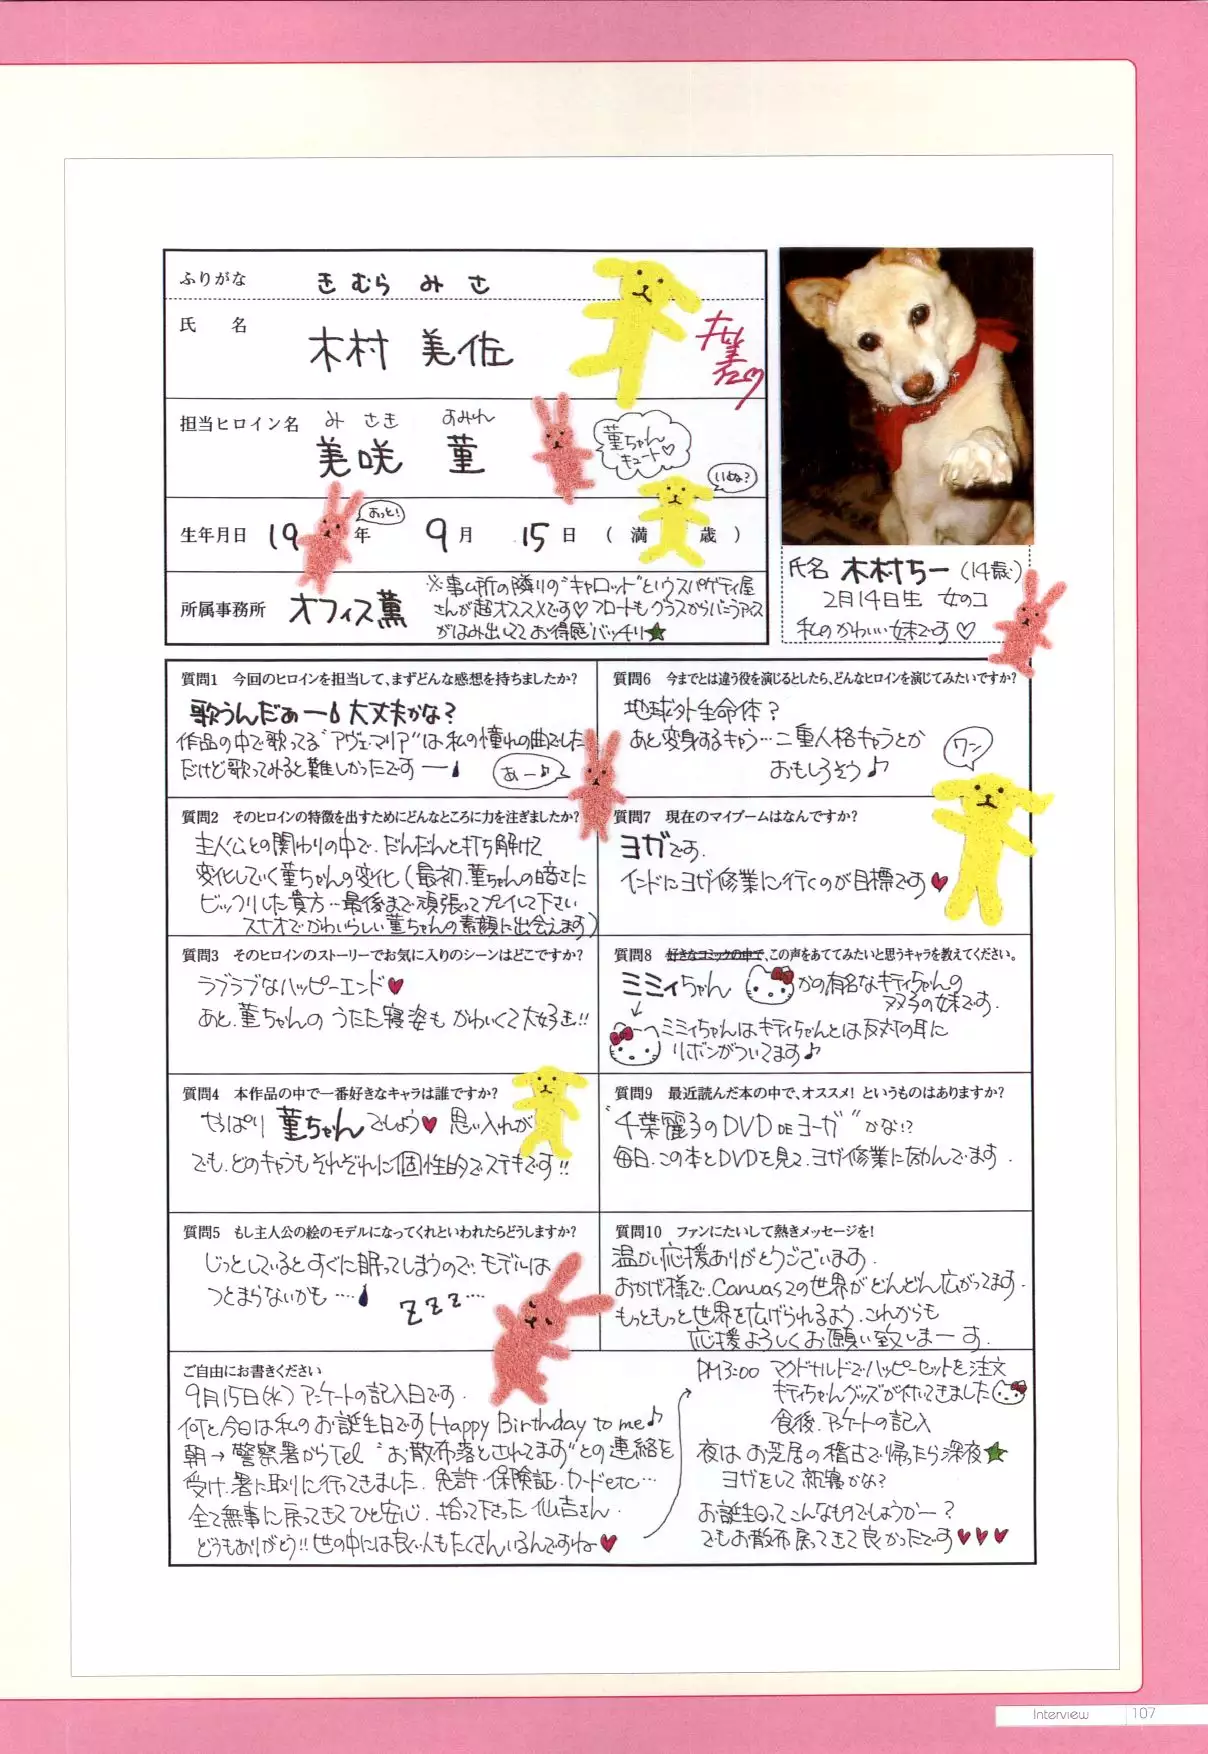 ふりがな きむら みさ
氏 名 木村 美佐
担当ヒロイン名 みさき すみれ
美咲 菫
菫ちゃん
キュート♡
いぬ?
おっと!
生年月日 19 年 9月 15日 ( 満 歳 )
所属事務所 オフィス薫
※事ム所の隣りの"キャロット"というスパゲティ屋
さんが超オススメです♡フロートもグラスからバニラアイス
がはみ出してて お得感バッチリ★
氏名 木村ちー (14歳)
2月14日生 女のコ
私のかわいい妹です♡
質問1 今回のヒロインを担当して、まずどんな感想を持ちましたか?
歌うんだぁー 大丈夫かな?
作品の中で歌ってる"アヴェ・マリア"は私の憧れの曲でした
だけど歌ってみると難しかったですー
あー♪
質問2 そのヒロインの特徴を出すためにどんなところに力を注ぎましたか?
主人公との関わりの中で、だんだんと打ち解けて
変化していく菫ちゃんの変化(最初、菫ちゃんの暗さに
ビックリした貴方…最後まで頑張ってプレイして下さい
スナオでかわいらしい菫ちゃんの素顔に出会えます)
質問3 そのヒロインのストーリーでお気に入りのシーンはどこですか?
ラブラブなハッピーエンド♥
あと、菫ちゃんの うたた寝姿も かわいくて大好き!!
質問4 本作品の中で一番好きなキャラは誰ですか?
やっぱり 菫ちゃんでしょう♥ 思い入れが
でも、どのキャラもそれぞれに個性的でステキです!!
質問5 もし主人公の絵のモデルになってくれといわれたらどうしますか?
じっとしているとすぐに眠ってしまうので、モデルは
つとまらないかも……
ZZZ…
質問6 今までとは違う役を演じるとしたら、どんなヒロインを演じてみたいですか?
地球外生命体?
あと変身するキャラ…二重人格キャラとか
おもしろそう♪
ワン
質問7 現在のマイブームはなんですか?
ヨガです.
インドにヨガ修業に行くのが目標です♥
質問8 好きなコミックの中で、この声をあててみたいと思うキャラを教えてください。
ミミィちゃん かの有名なキティちゃんの
双子の妹です.
ミミィちゃんはキティちゃんとは反対の耳に
リボンがついてます♪
質問9 最近読んだ本の中で、オススメ! というものはありますか?
"千葉麗子のDVD DE ヨーガ"かな!?
毎日、この本とDVDを見て、ヨガ修業に励んでます.
質問10 ファンにたいして熱きメッセージを!
温かい応援ありがとうございます.
おかげ様で、Canvas2の世界がどんどん広がってます.
もっともっと世界を広げられるよう、これからも
応援よろしくお願い致しまーす.
ご自由にお書きください
9月15日(水) アンケートの記入日です.
何と、今日は私のお誕生日です Happy Birthday to me♪
朝→警察署からTel "お散布落とされてます"との連絡を
受け、署に取りに行ってきました. 免許・保険証・カードetc…
全て無事に戻ってきてひと安心. 拾って下さった仙吉さん.
どうもありがとう!! 世の中には良い人もたくさんいるんですね♥
PM3:00 マクドナルドでハッピーセットを注文
キティちゃんグッズが付いてきました
食後、アンケートの記入
夜は お芝居の稽古で帰ったら深夜★
ヨガをして就寝かな?
お誕生日ってこんなものでしょうかー?
でもお散布戻ってきて良かったです♥♥♥
Interview 107